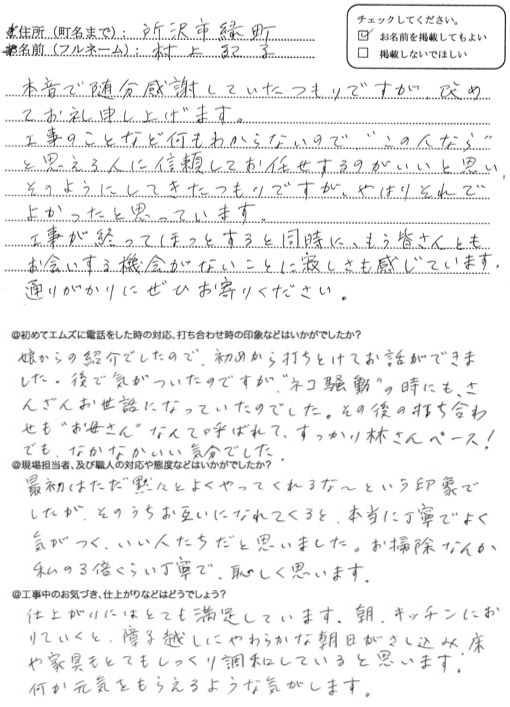 ご住所（町名まで）：所沢市緑町
お名前（フルネーム）：村上 紀子
チェックしてください。
☑ お名前を掲載してもよい
□ 掲載しないでほしい
本音で随分感謝していたつもりですが、改め
てお礼申し上げます。
工事のことなど何もわからないので、"この人なら"
と思える人に信頼してお任せするのがいいと思い、
そのようにしてきたつもりですが、やはりそれで
よかったと思っています。
工事が終ってほっとすると同時に、もう皆さんとも
お会いする機会がないことに寂しさも感じています。
通りがかりにぜひお寄りください。
@初めてエムズに電話をした時の対応、打ち合わせ時の印象などはいかがでしたか？
娘からの紹介でしたので、初めから打ちとけてお話ができま
した。後で気がついたのですが、"ネコ騒動"の時にも、さ
んざんお世話になっていたのでした。その後の打ち合わ
せも"お母さん"なんて呼ばれて、すっかり林さんペース！
でも、なかなかいい気分でした。
@現場担当者、及び職人の対応や態度などはいかがでしたか？
最初はただ黙々とよくやってくれるな〜という印象で
したが、そのうちお互いになれてくると、本当に丁寧でよく
気がつく、いい人たちだと思いました。お掃除なんか
私の3倍くらい丁寧で、恥しく思います。
@工事中のお気づき、仕上がりなどはどうでしょう？
仕上がりにはとても満足しています。朝、キッチンにお
りていくと、障子越しにやわらかな朝日がさし込み、床
や家具もとてもしっくり調和していると思います。
何か元気をもらえるような気がします。